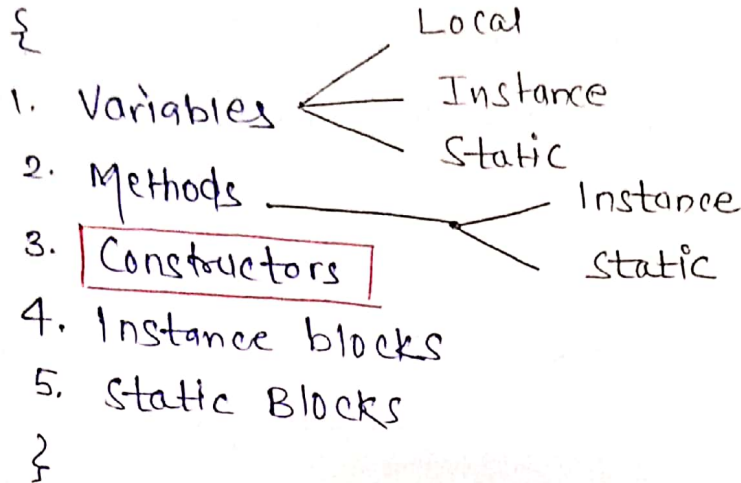 {
Local
1. Variables
Instance
Static
2. Methods
Instance
Static
3. Constructors
4. Instance blocks
5. Static Blocks
}